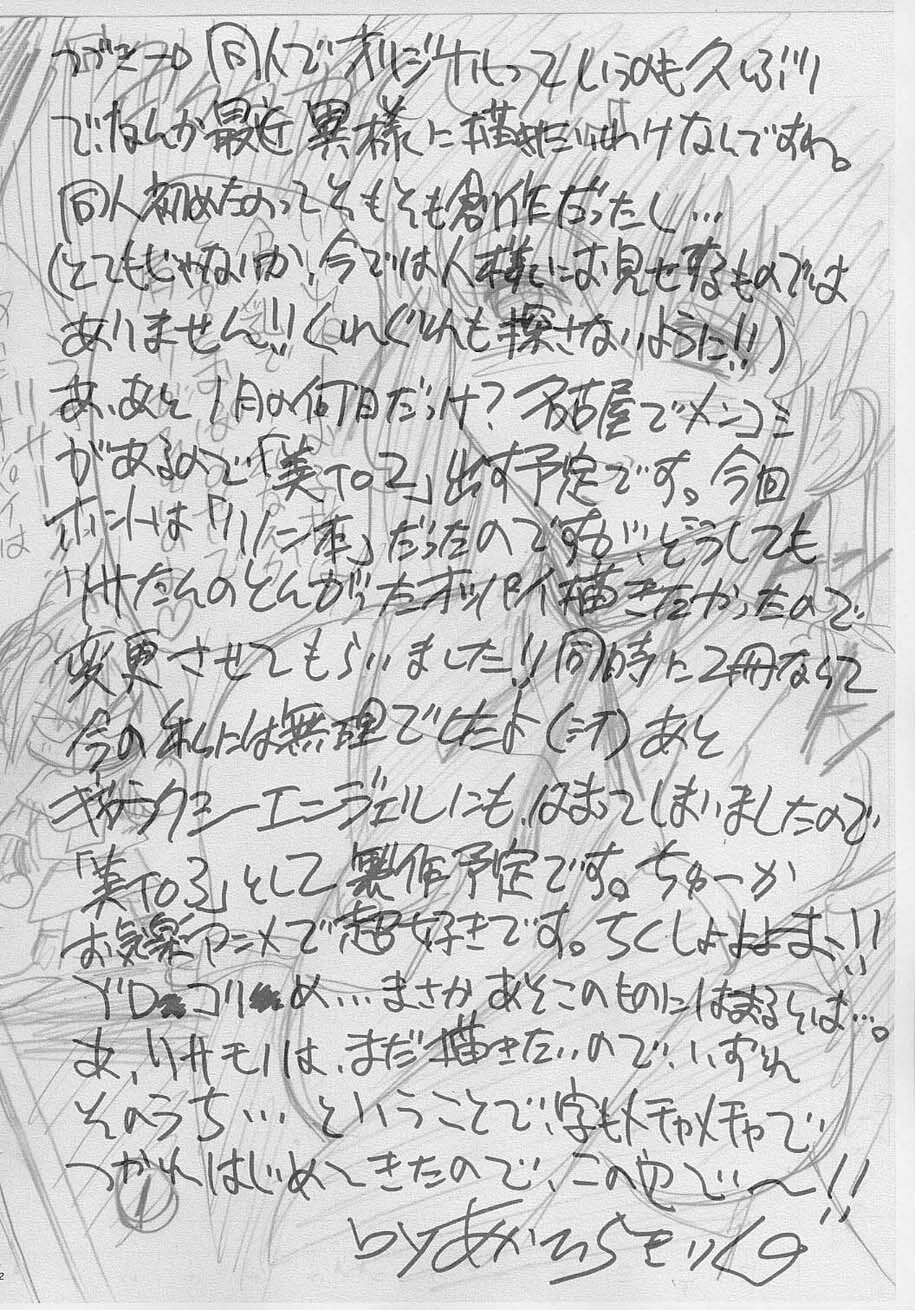 つづき→ 同人でオリジナルっていうのも久しぶり
で、なんか最近異様に描きたいわけなんですわ。
同人初めたのってそもそも創作だったし…
(とてもじゃないが、今では人様にお見せするものでは
ありません!!くれぐれも探さないように!!)
あ、あと1月の何日だっけ?名古屋でメンコミ
があるので「美to2」出す予定です。今回
ホントは「リノン本」だったのですが、どうしても
リサたんのとんがったオッパイ描きたかったので
変更させてもらいました!!同時に2冊なんて
今の私には無理でしたよ(汗)あと
ギャラクシーエンジェルにも、はまってしまいましたので
「美to3」として製作予定です。ちゅーか
お気楽アニメで超好きです。ちくしょよよょ!!
ブロ コリ め…まさかあそこのものにはまるとは…。
あ、リサモノは、まだ描きたいので、いずれ
そのうち…ということで、字もメチャメチャで
つかれはじめてきたので、この辺で〜!!
by あかひらきりく